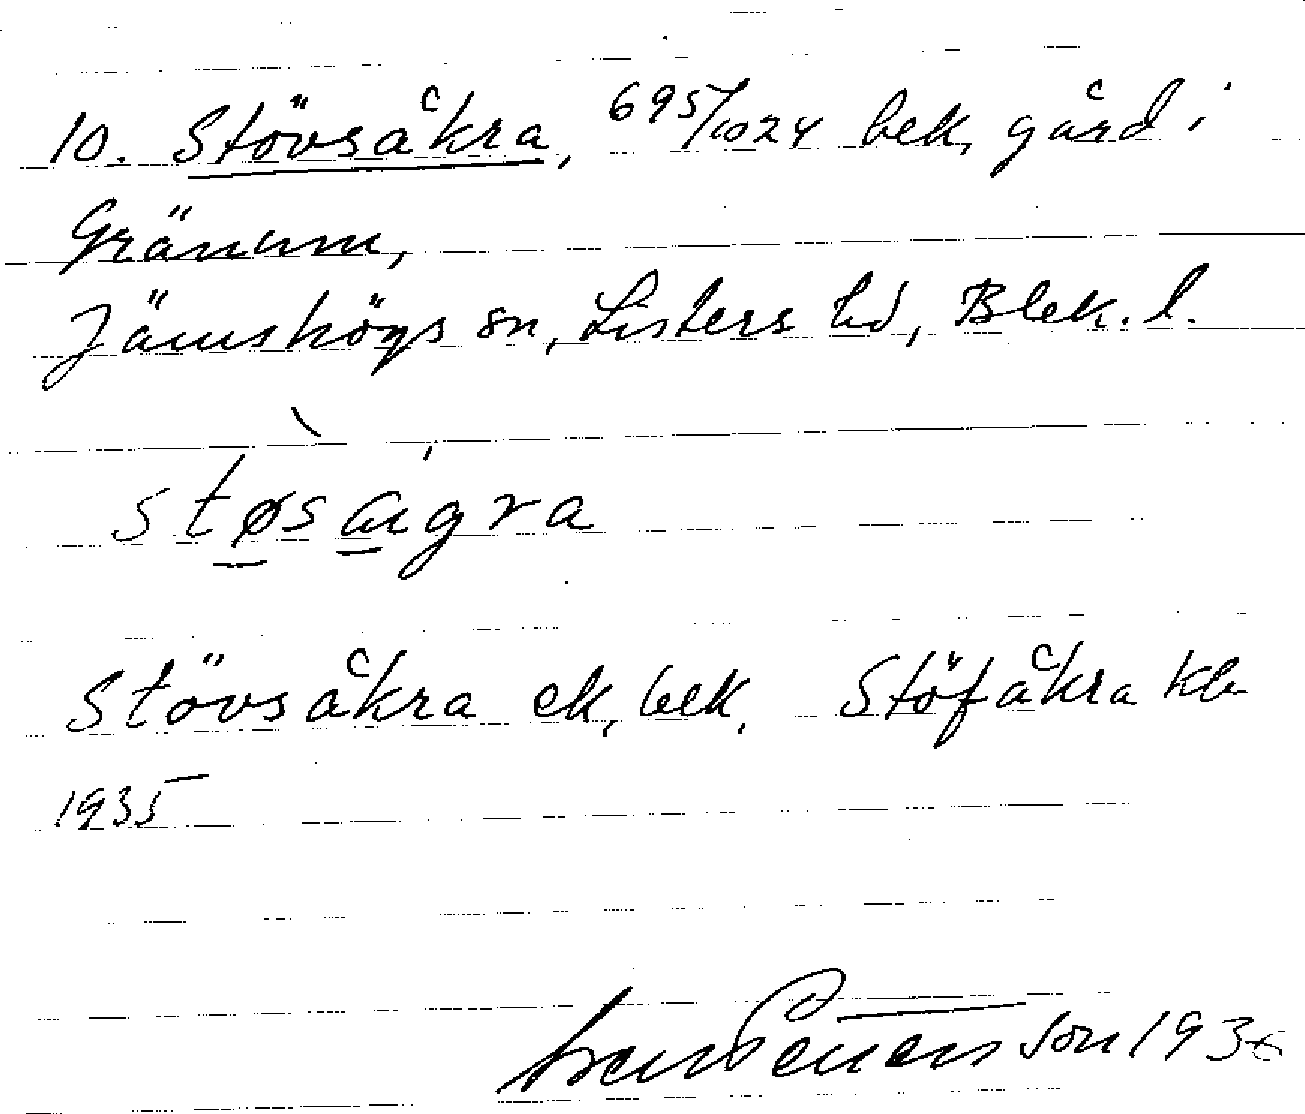 10. Stövsåkra, 695/1024 bek, gård i
Gränum,
Jämshögs sn, Listers hd, Blek. l.
støsågra
Stövsåkra ek, bek. Stöfåkra kb
1935
Petterson 1936